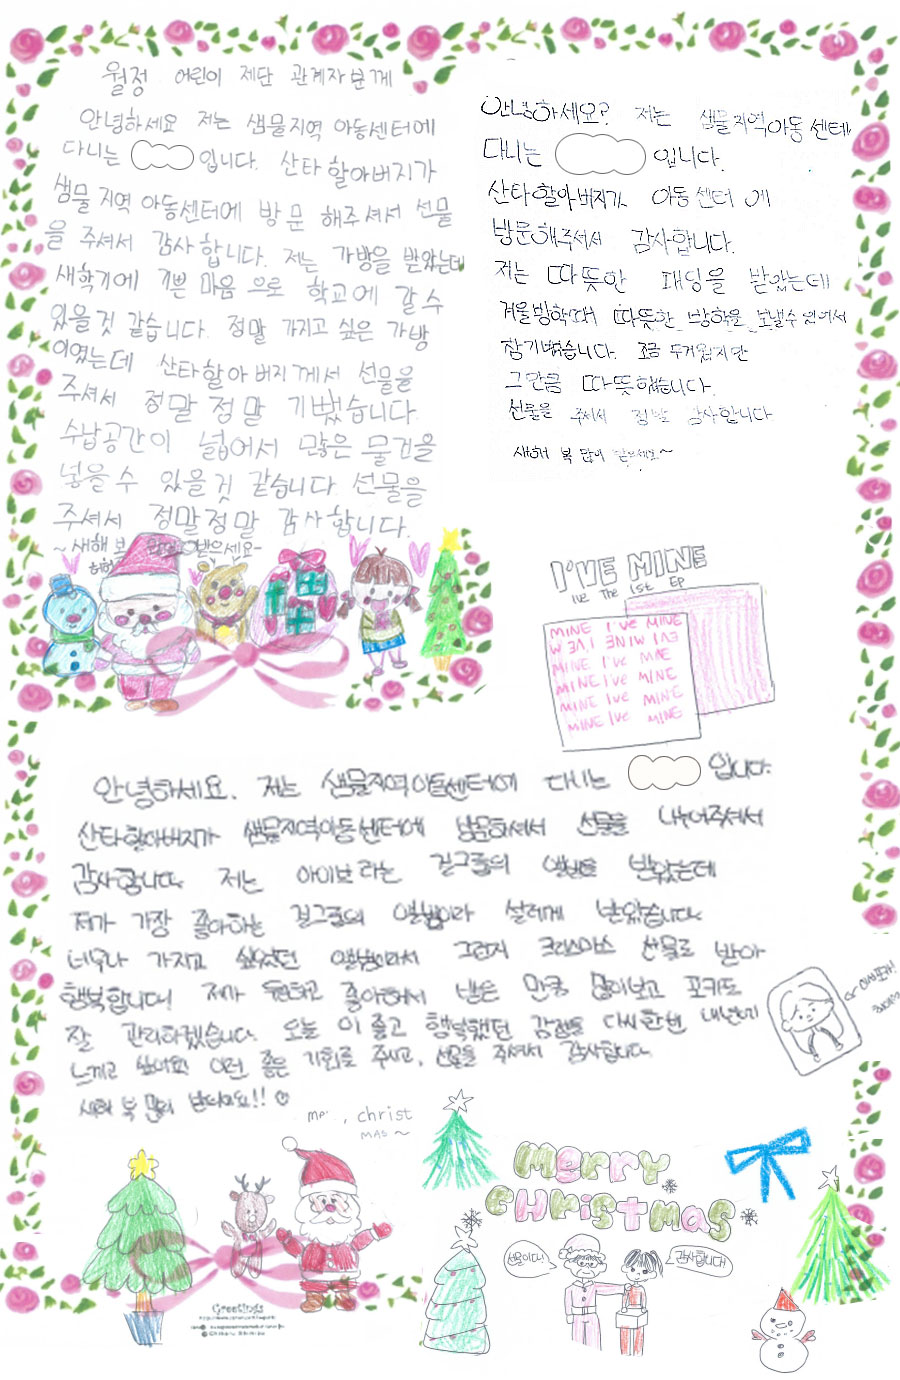 월정 어린이 재단 관계자분께
안녕하세요 저는 샘물지역 아동센터에
다니는 입니다. 산타 할아버지가
샘물 지역 아동센터에 방문 해주셔서 선물
을 주셔서 감사합니다. 저는 가방을 받았는데
새학기에 기쁜 마음 으로 학교에 갈 수
있을것 같습니다. 정말 가지고 싶은 가방
이였는데 산타할아버지께서 선물을
주셔서 정말 정말 기뻤습니다.
수납공간이 넓어서 많은 물건을
넣을 수 있을것 같습니다. 선물을
주셔서 정말정말 감사합니다.
~새해 복 받으세요~
안녕하세요? 저는 샘물지역아동센터
다니는 입니다.
산타할아버지가 아동센터에
방문해주셔서 감사합니다.
저는 따뜻한 패딩을 받았는데
겨울방학때 따뜻한 방학을 보낼수 있어서
참 기뻤습니다. 조금 두거웠지만
그만큼 따뜻했습니다.
선물을 주셔서 정말 감사합니다
새해 복 많이 받으세요~
I'VE MINE
IVE The 1st EP
MINE I've MINE
MINE I've MINE
MINE I've MINE
MINE I've MINE
MINE I've MINE
MINE I've MINE
안녕하세요. 저는 샘물지역아동센터에 다니는 입니다.
산타할아버지가 샘물지역아동센터에 방문하셔서 선물을 나누어주셔서
감사합니다. 저는 아이브라는 걸그룹의 앨범을 받았는데
저가 가장 좋아하는 걸그룹의 앨범이라 설레게 받았습니다.
너무나 가지고 싶었던 앨범이라서 그런지 크리스마스 선물로 받아
행복합니다! 제가 원하고 좋아해서 받은 만큼 많이보고 포카도
잘 관리하겠습니다. 오늘 이 좋고 행복했던 감정을 다시한번 내년에
느끼고 싶어요! 이런 좋은 기회를 주시고, 선물을 주셔서 감사합니다.
새해 복 많이 받으세요!! ☺
christ
MAS ~
Merry
CHristmas
선물이다!
감사합니다!
Greetings